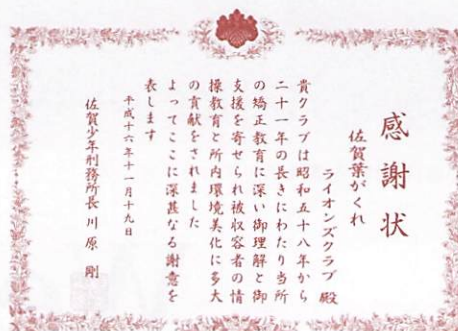 感謝状
佐賀葉がくれ
ライオンズクラブ 殿
貴クラブは昭和五十八年から
二十一年の長きにわたり当所
の矯正教育に深い御理解と御
支援を寄せられ被収容者の情
操教育と所内環境美化に多大
の貢献をされました
よってここに深甚なる謝意を
表します
平成十六年十一月十九日
佐賀少年刑務所長 川原 剛